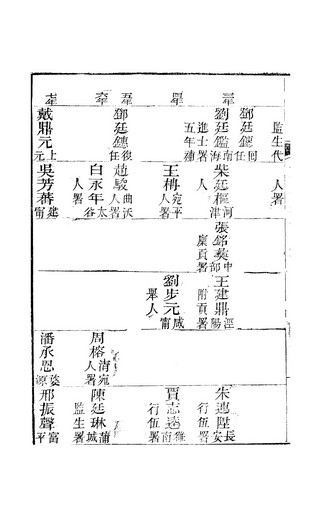 三年
四年
五年
六年
七年
監生代
鄧廷鏸回任
劉廷鑑南海
進士署
五年連
鄧廷鏸復任
戴鼎元上元
人署
柴廷樞河津
人
王梅宛平
人署
趙駿曲沃
人署
白永年太谷
人署
吳芳蕃建甯
張銘英中部
廩貢署
王建鼎涇陽
附貢署
劉步元咸甯
舉人
朱連陞長安
行伍署
賈志遠雒南
行伍署
周榕清宛
人署
陳廷琳蒲城
監生署
潘承恩婺源
邢振聲富平